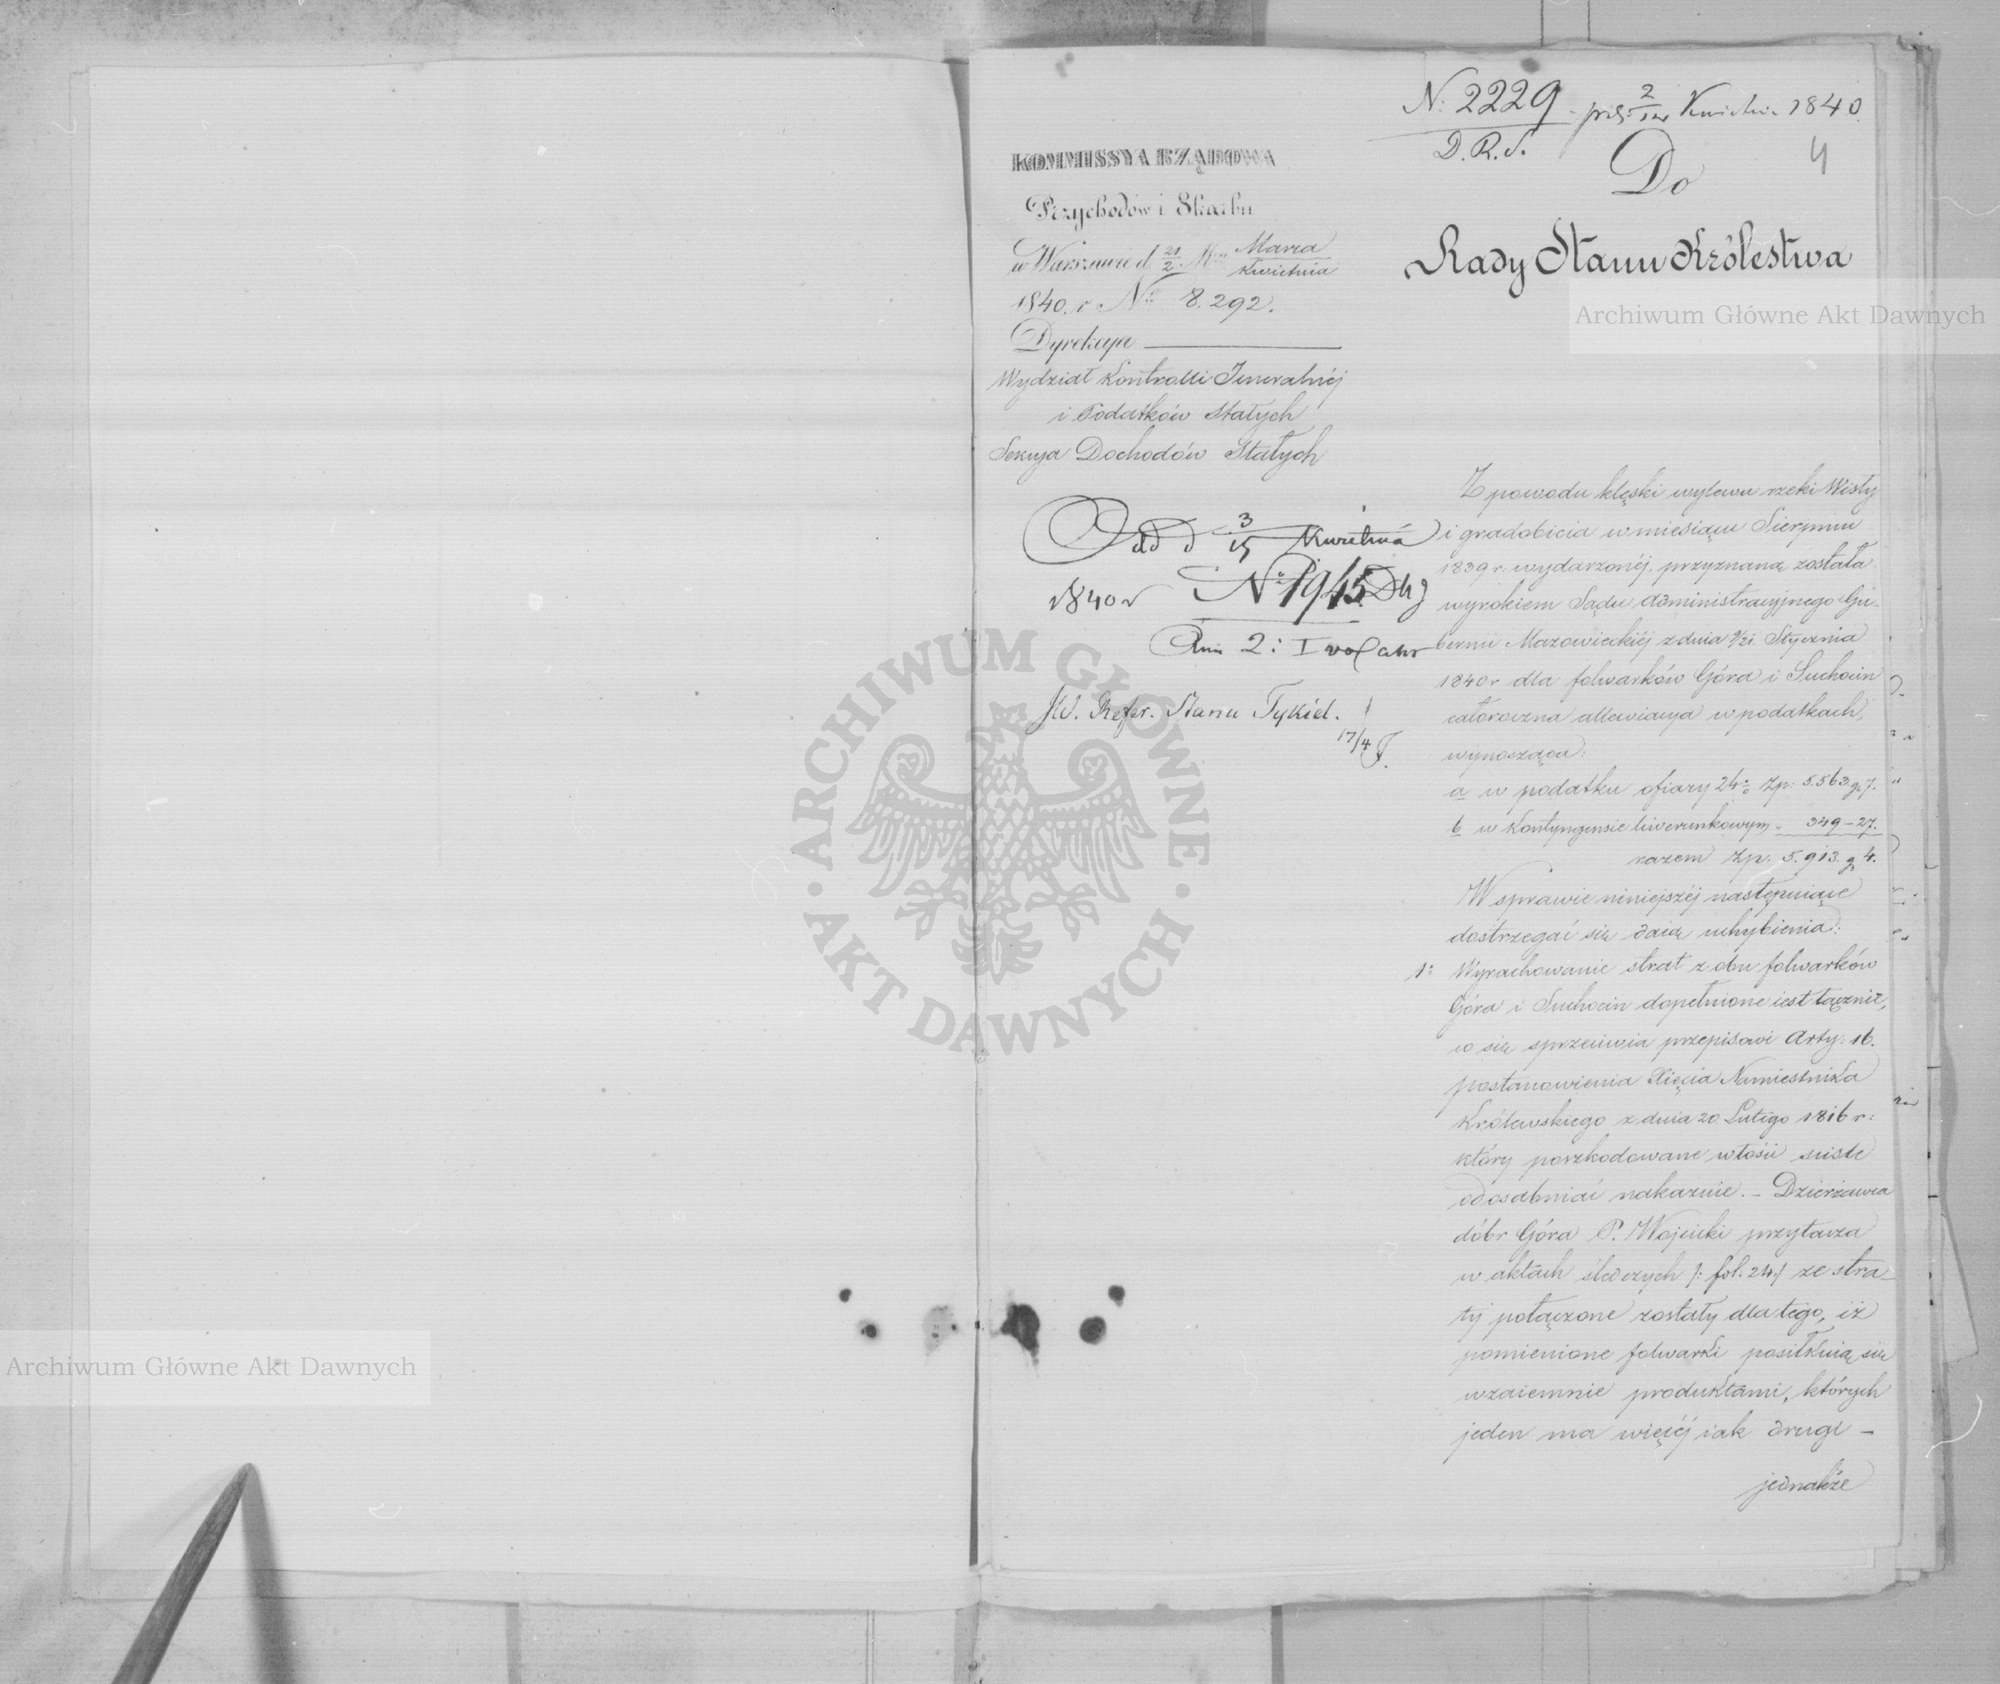 N: 2229 – prez: 2/14 Kwietnia 1840.
D. R. S.
4
Do
Rady Stanu Królestwa
KOMMISSYA RZĄDOWA
Przychodów i Skarbu
w Warszawie d. 21/2 Mca Marca/Kwietnia
1840. r No 8.292.
Dyrekcya
Wydział Kontrolli Jeneralnéj
i Podatków Stałych
Sekcya Dochodów Stałych
Odd d 3/15 Kwietnia
1840 r N: 1945
2: I vol akt
JW. Refer. Stanu Tykiel.
17/4
Z powodu klęski wylewu rzeki Wisły
i gradobicia w miesiącu Sierpniu
1839 r: wydarzonéj, przyznaną została
wyrokiem Sądu Administracyjnego Gu-
bernii Mazowieckiéj z dnia 9/21 Stycznia
1840 r dla folwarków Góra i Suchocin
całoroczna allewiacya w podatkach,
wynosząca:
a w podatku ofiary 24o Zp: 5.563 g 7.
b w Kontyngensie liwerunkowym „ 349 – 27.
razem Zp. 5.913. g 4.
W sprawie niniejszéj następuiące
dostrzegać się daią uchybienia:
1: Wyrachowanie strat z obu folwarków
Góra i Suchocin dopełnione iest łącznie,
co się sprzeciwia przepisowi Arty: 16.
postanowienia Xięcia Namiestnika
Królewskiego z dnia 20 Lutego 1816 r:
który poszkodowane włości ściśle
odosabniać nakazuie. – Dzierżawca
dóbr Góra P. Wojcicki przytacza
w aktach śledczych /: fol: 24:/ że stra-
ty połączone zostały dla tego, iż
pomienione folwarki posiłkuią się
wzaiemnie produktami, których
jeden ma więcéj iak drugi –
jednakże
ARCHIWUM GŁÓWNE AKT DAWNYCH
Archiwum Główne Akt Dawnych
Archiwum Główne Akt Dawnych